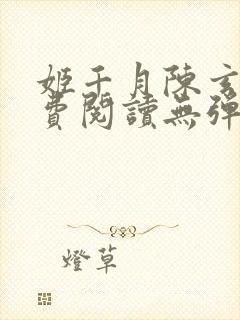 姬千月陳玄
費閱讀無彈
燈草